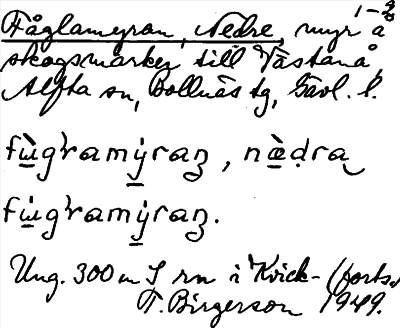 1-2
Fåglamyran, Nedre, myr å
skogsmarken till Västanå,
Alfta sn, Bollnäs tg, Gävl. l.
fɯ̀gʹramýraꞑ, næ̀ḍra
fɯ́gʹramýraꞑ.
Ung. 300 m S rn i Kvick- (forts.
T. Birgerson 1949.